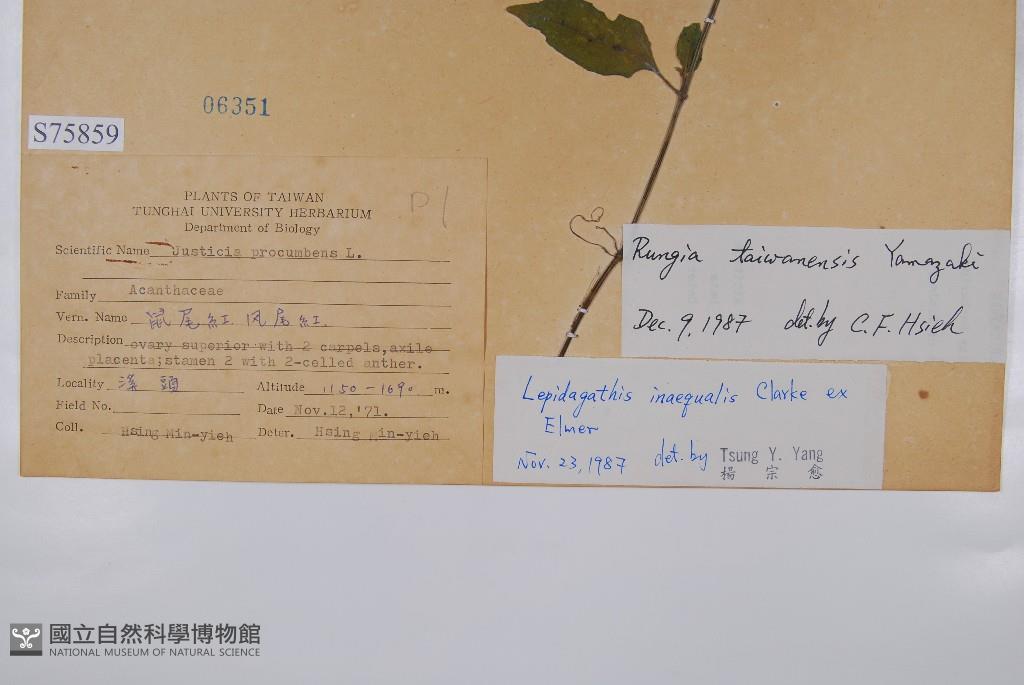 06351
S75859
PLANTS OF TAIWAN
TUNGHAI UNIVERSITY HERBARIUM
Department of Biology
P1
Scientific Name Justicia procumbens L.
Family Acanthaceae
Vern. Name 鼠尾紅 鳳尾紅
Description ovary superior with 2 carpels,axile
placenta;stamen 2 with 2-celled anther.
Locality 溪頭 Altitude 1150-1690 m.
Field No. Date Nov.12,'71.
Coll. Hsing Min-yieh Deter. Hsing Min-yieh
Rungia taiwanensis Yamazaki
Dec. 9, 1987 det. by C. F. Hsieh
Lepidagathis inaequalis Clarke ex
Elmer
Nov. 23, 1987 det. by Tsung Y. Yang
楊宗愈
國立自然科學博物館
NATIONAL MUSEUM OF NATURAL SCIENCE